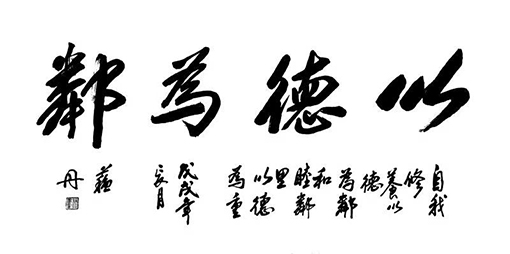 以德為鄰
自我
修
養以
德
為鄰
和
睦鄰
里
以德
為重
戊戌年
亥月
蘇
丹